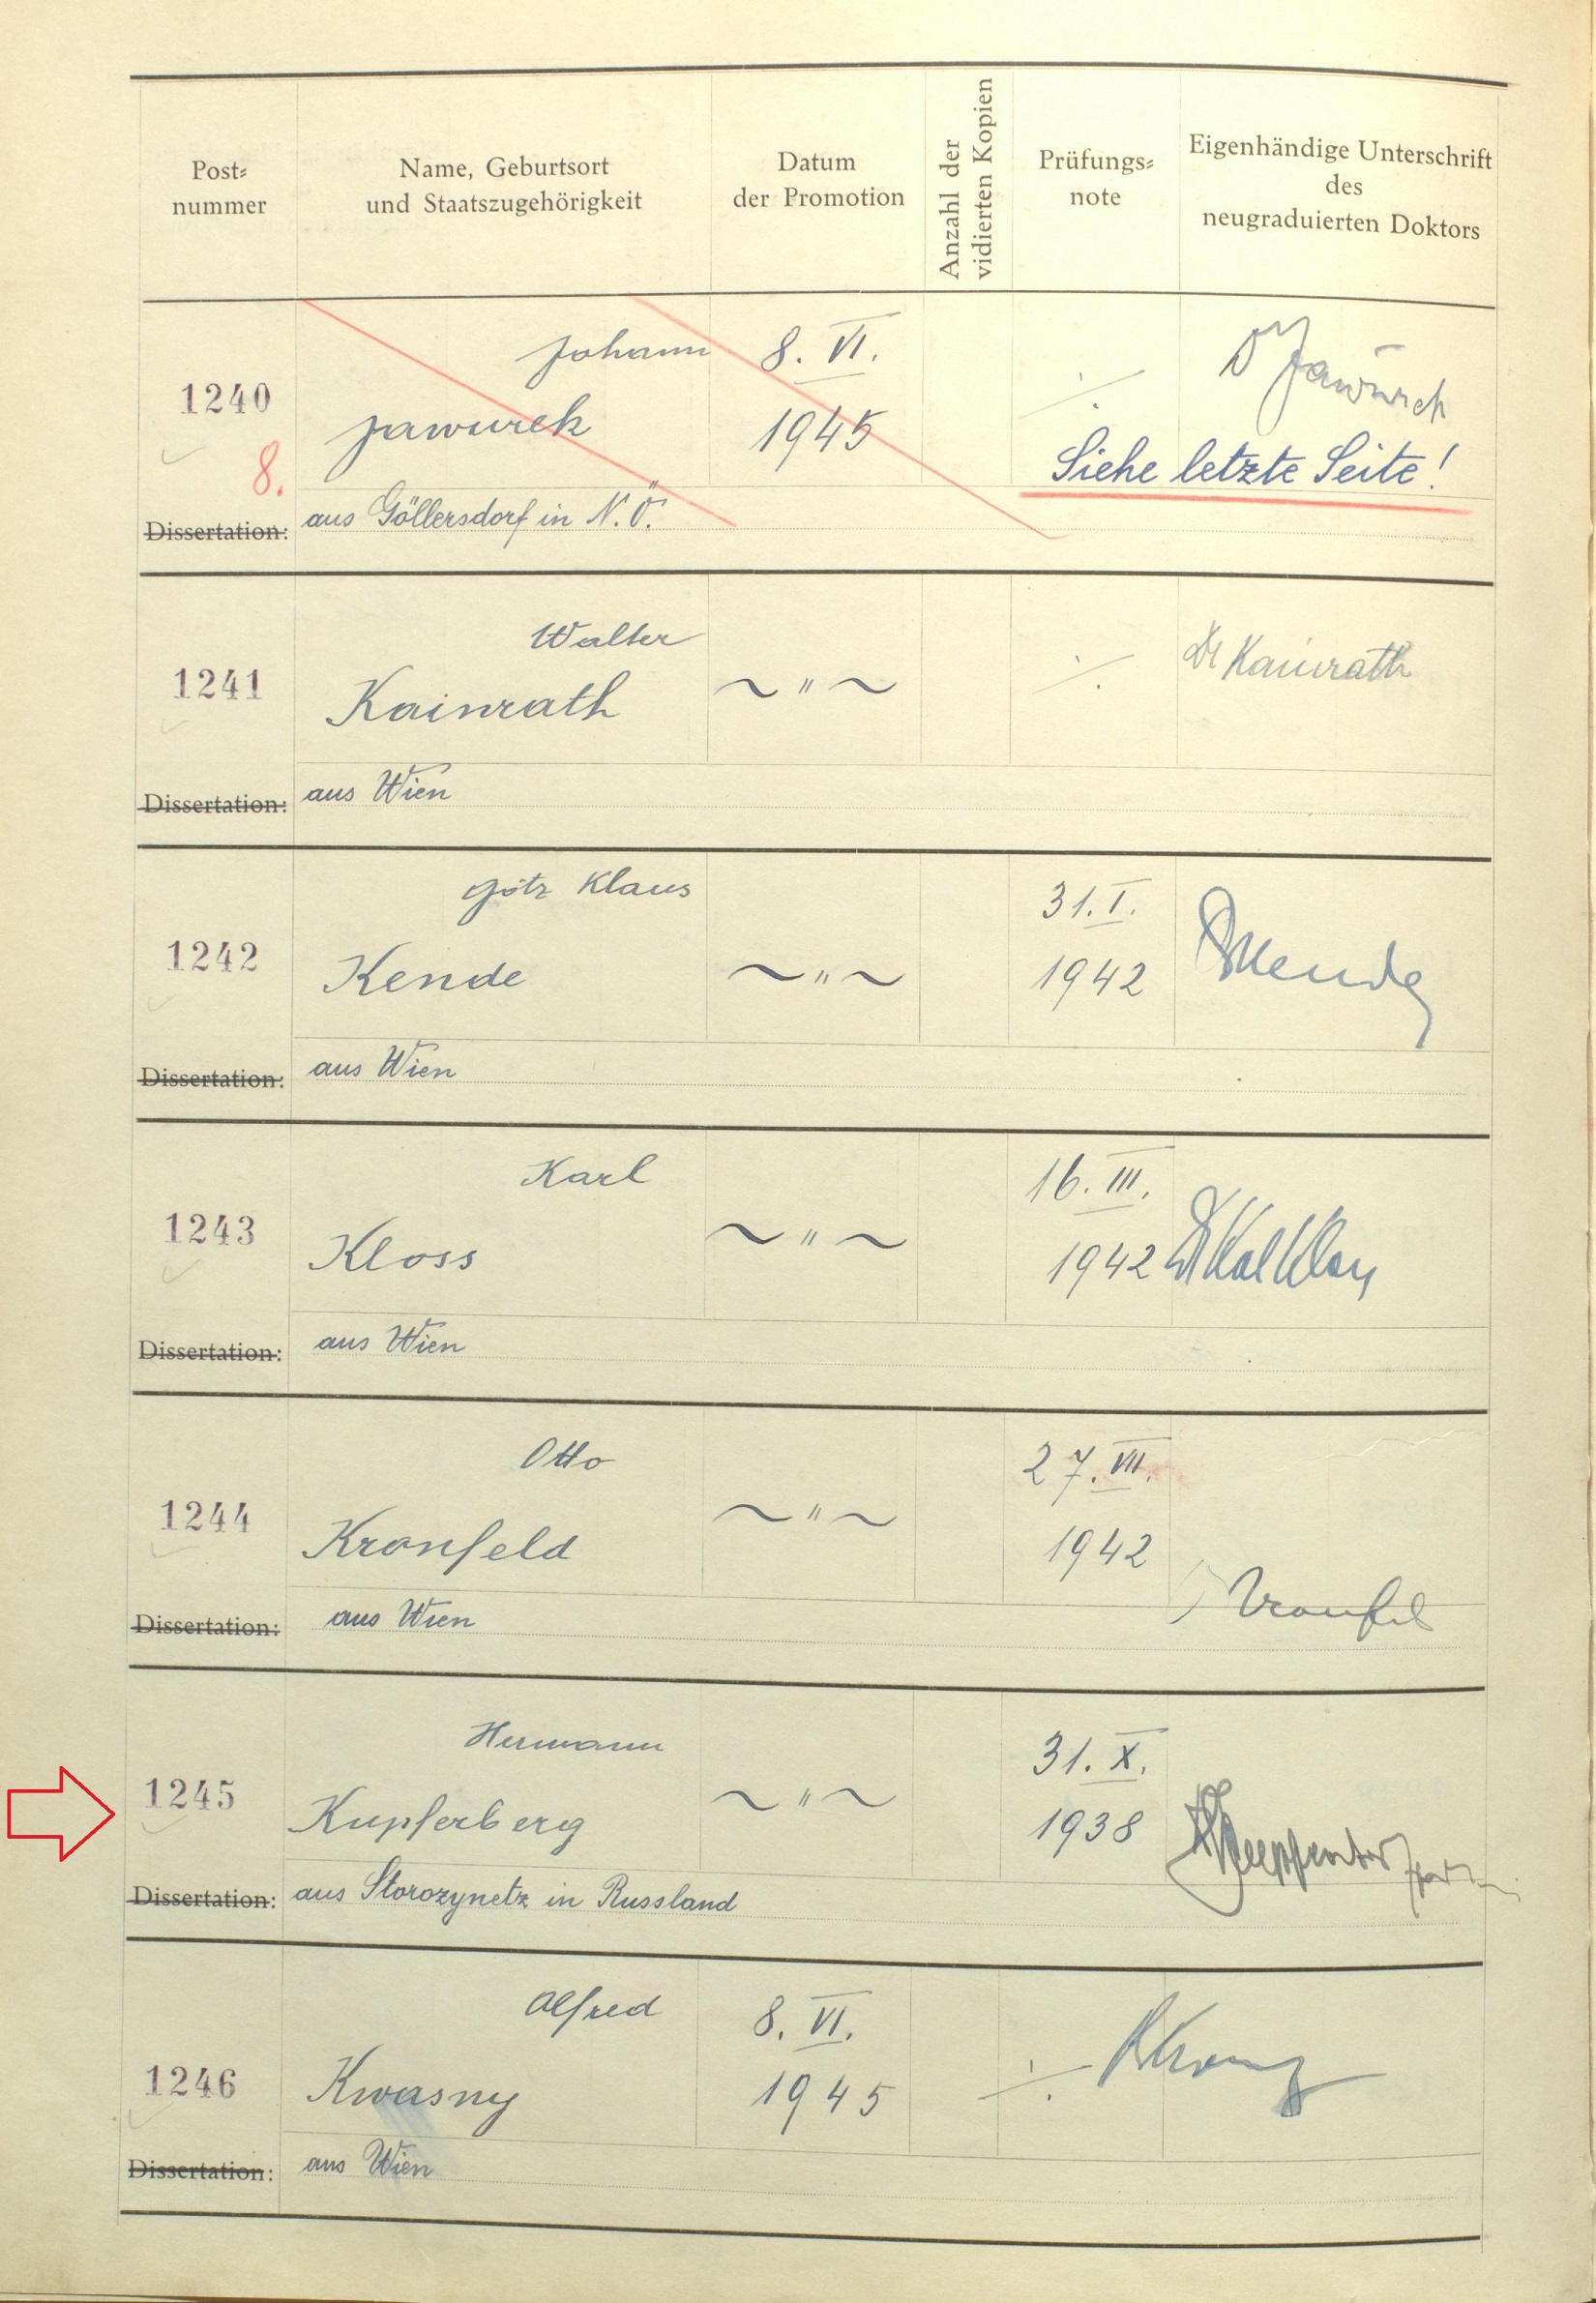 Post=
nummer
Name, Geburtsort
und Staatszugehörigkeit
Datum
der Promotion
Anzahl der
vidierten Kopien
Prüfungs=
note
Eigenhändige Unterschrift
des
neugraduierten Doktors
1240
8.
Johann
Jawurek
8. VI.
1945
Dr Jawurek
Siehe letzte Seite!
Dissertation: aus Göllersdorf in N.Ö.
1241
Walter
Kainrath
~ " ~
Dr Kainrath
Dissertation: aus Wien
1242
Götz Klaus
Kende
~ " ~
31. I.
1942
Dissertation: aus Wien
1243
Karl
Kloss
~ " ~
16. III.
1942
Dissertation: aus Wien
1244
Otto
Kronfeld
~ " ~
27. VII.
1942
Dissertation: aus Wien
1245
Hermann
Kupferberg
~ " ~
31. X.
1938
Dissertation: aus Storozynetz in Russland
1246
Alfred
Kwasny
8. VI.
1945
Dissertation: aus Wien